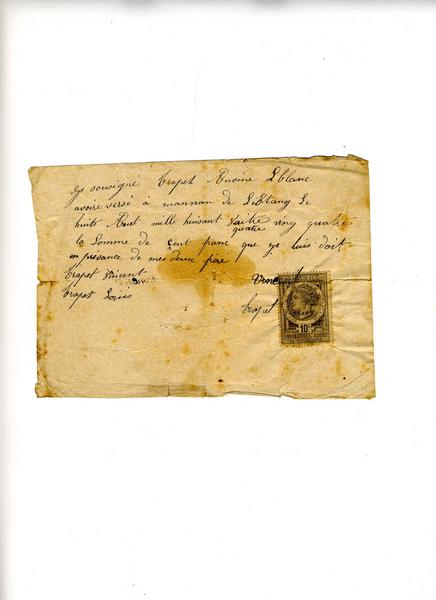 Je sousigné Trapet Anoine Leblanc
avoire versé à mannan de L'Etang Le
huits Aout mille huisant vaitre ving quatre
quatre
la Somme de cent franc que ge luis doit
en presance de mes deux père
Trapet Vincent
Trapet Louis
Vincent
Trapet
10c